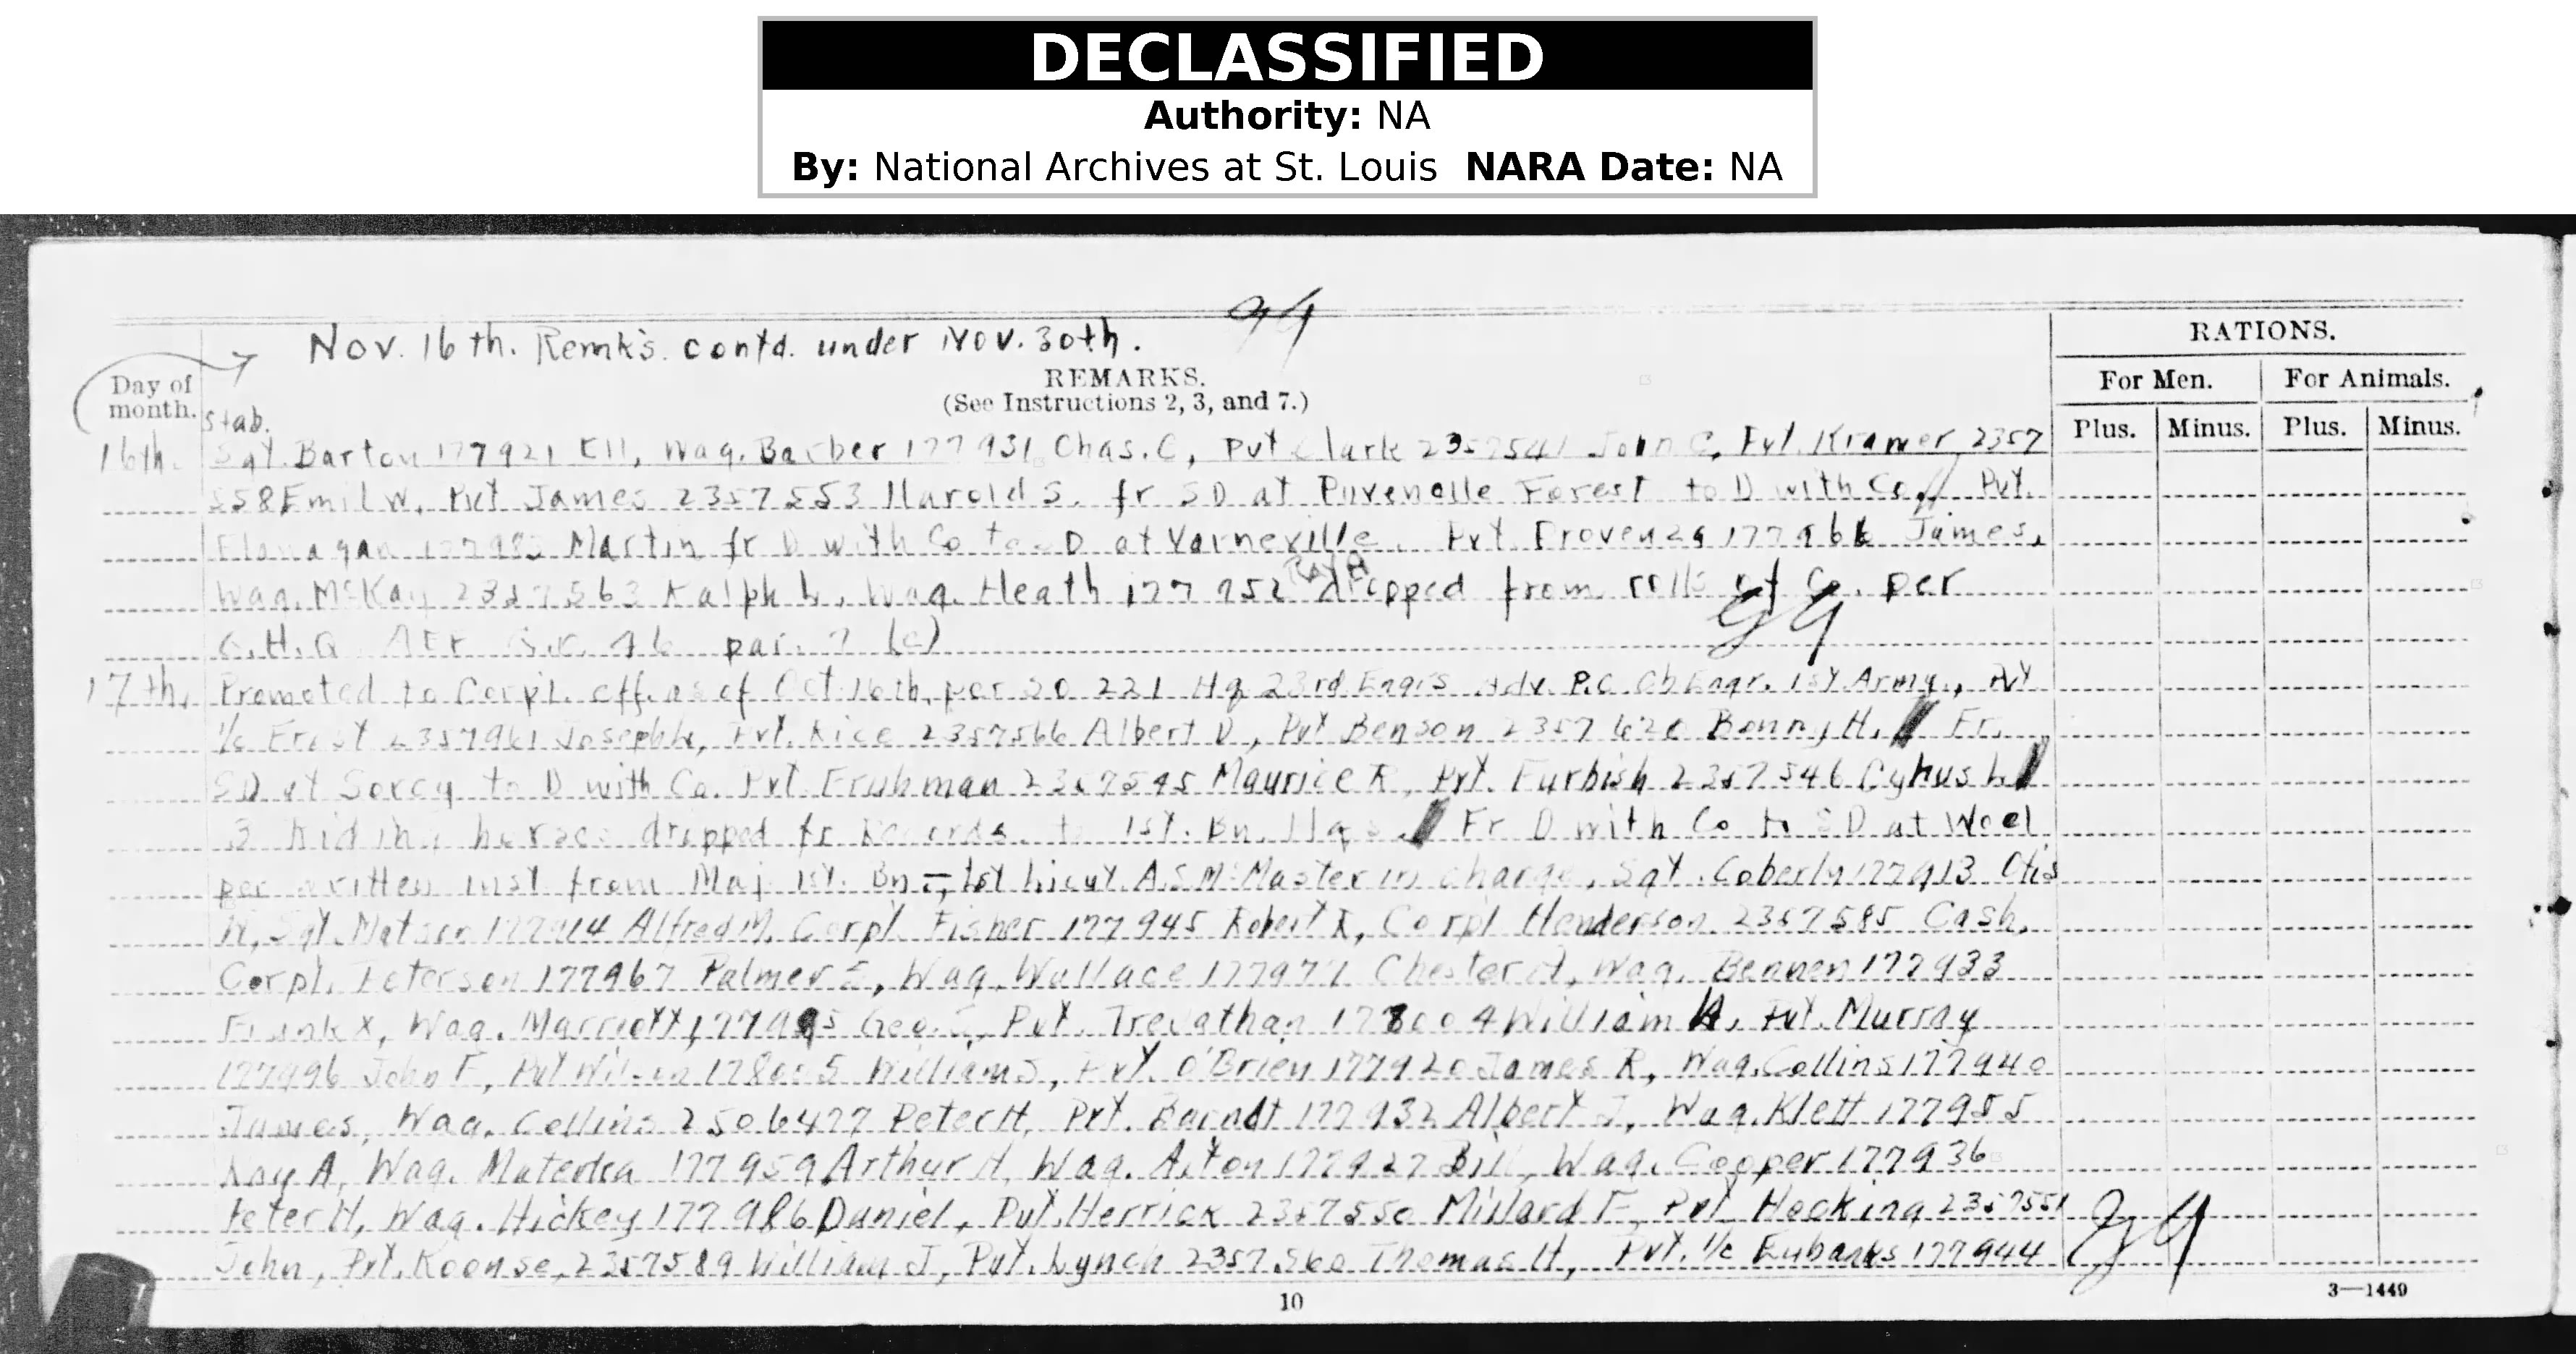 DECLASSIFIED
Authority: NA
By: National Archives at St. Louis NARA Date: NA
Nov. 16th. Remks. contd. under Nov. 30th.
RATIONS.
Day of month.
REMARKS.
(See Instructions 2, 3, and 7.)
For Men. For Animals.
Plus. Minus. Plus. Minus.
Stab.
16th. Sgt. Barton 177921 Ell, Wag. Barber 177931 Chas. C, Pvt Clark 2357541 John C, Pvt. Kramer 2357
558 Emil W. Pvt James 2357553 Harold S. fr SD at Puvenelle Forest to D with Co. Pvt.
Flanagan Martin fr D with Co to SD at Varneville. Pvt. Provenza 177966 James,
Wag. McKay 2357563 Ralph L, Wag. Heath 177952 Ray A dropped from rolls of Co. per
G.H.Q. AEF G.O. 46 par. 7 (c)
17th. Promoted to Corpl. eff. as of Oct 16th, per SO 221 Hq 23rd Engrs Adv. P.C. Ch Engr. 1st Army., Pvt
1/c Frost 2357961 Joseph L, Pvt. Rice 2357566 Albert D, Pvt Benson 2357620 Benny H. Fr.
SD at Sorcy to D with Co. Pvt Fruhman 2357545 Maurice R, Pvt. Furbish 2357546 Cyrus L
3 Riding horses dropped fr Records to 1st. Bn. Hqs. Fr D with Co to SD at Woel
per written inst from Maj 1st. Bn -, 1st Lieut. A.S. McMaster in charge, Sgt. Coberly 177913 Otis
N, Sgt. Matson 177914 Alfred M, Corpl. Fisher 177945 Robert R, Corpl Henderson 2357585 Cash,
Corpl. Peterson 177967 Palmer E, Wag. Wallace 177977 Chester A, Wag. Bennen 177933
Frank X, Wag. Marriott 177995 Geo. C, Pvt. Trevathan 178004 William A, Pvt. Murray
177996 John F, Pvt Wilson 178005 William S, Pvt. O'Brien 177920 James R, Wag. Collins 177940
James, Wag. Collins 2506477 Peter H, Pvt. Barndt 177932 Albert J, Wag. Klett 177955
Ray A, Wag. 177959 Arthur H, Wag. Aiton 177927 Bill, Wag. Cooper 177936
Peter H, Wag. Hickey 177986 Daniel, Pvt. Herrick 2357550 Millard F, Pvt Hocking 2357551
John, Pvt. Koonse, 2357589 William J, Pvt. Lynch 2357560 Thomas H, Pvt. 1/c Eubanks 177944
10
3—1449